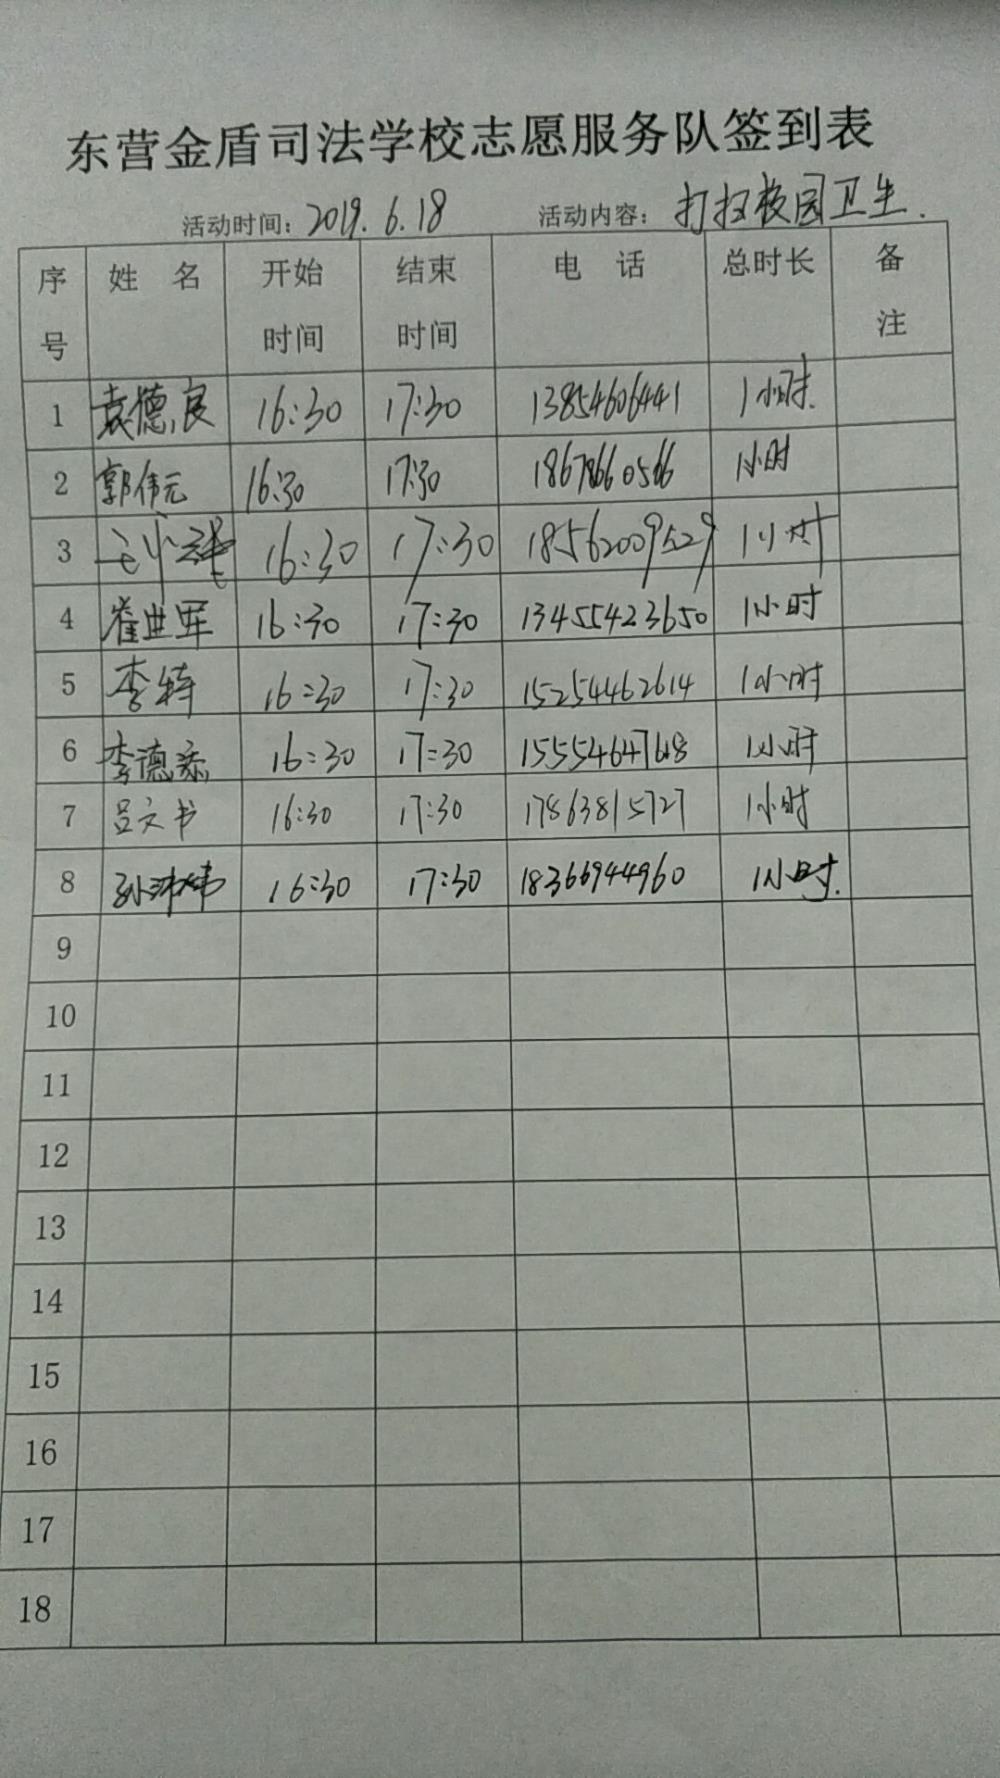 东营金盾司法学校志愿服务队签到表
活动时间：2019.6.18 活动内容：打扫校园卫生.
序号 姓 名 开始时间 结束时间 电 话 总时长 备注
1 袁德良 16:30 17:30 13854606441 1小时.
2 郭伟元 16:30 17:30 1小时
3 16:30 17:30 18562009529 1小时
4 崔世军 16:30 17:30 13455423650 1小时
5 李特 16:30 17:30 15254462614 1小时
6 李德泰 16:30 17:30 155554647618 1小时
7 吕文书 16:30 17:30 17863815727 1小时
8 孙沛炜 16:30 17:30 18366944960 1小时.
9
10
11
12
13
14
15
16
17
18